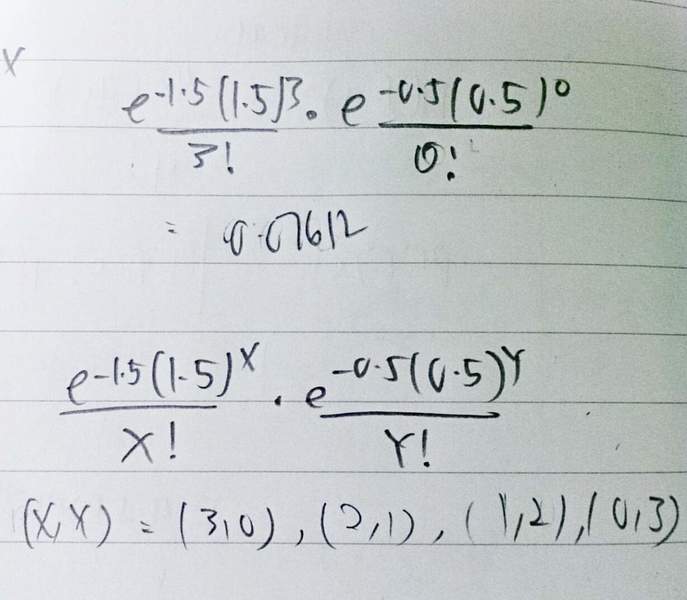 X
e^-1.5(1.5)^3/3! · e^-0.5(0.5)^0/0!
= 0.07612
e^-1.5(1.5)^X/X! · e^-0.5(0.5)^Y/Y!
(X,Y) = (3,0), (2,1), (1,2), (0,3)